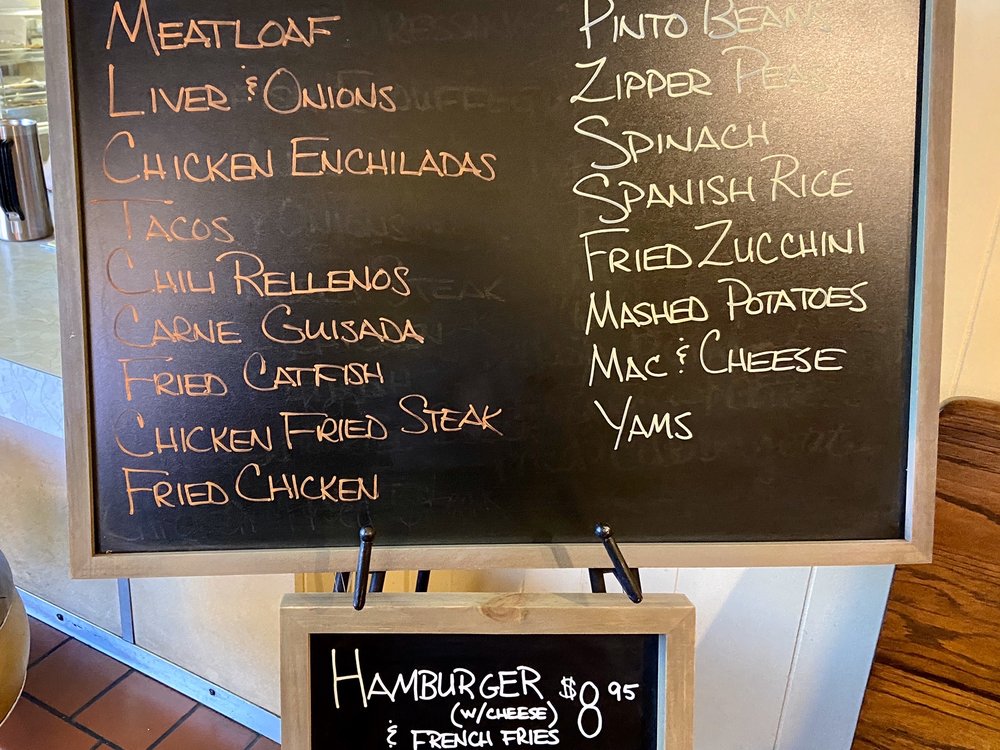 MEATLOAF
LIVER & ONIONS
CHICKEN ENCHILADAS
TACOS
CHILI RELLENOS
CARNE GUISADA
FRIED CATFISH
CHICKEN FRIED STEAK
FRIED CHICKEN
PINTO BEANS
ZIPPER PEAS
SPINACH
SPANISH RICE
FRIED ZUCCHINI
MASHED POTATOES
MAC & CHEESE
YAMS
HAMBURGER $8.95
(W/CHEESE)
& FRENCH FRIES